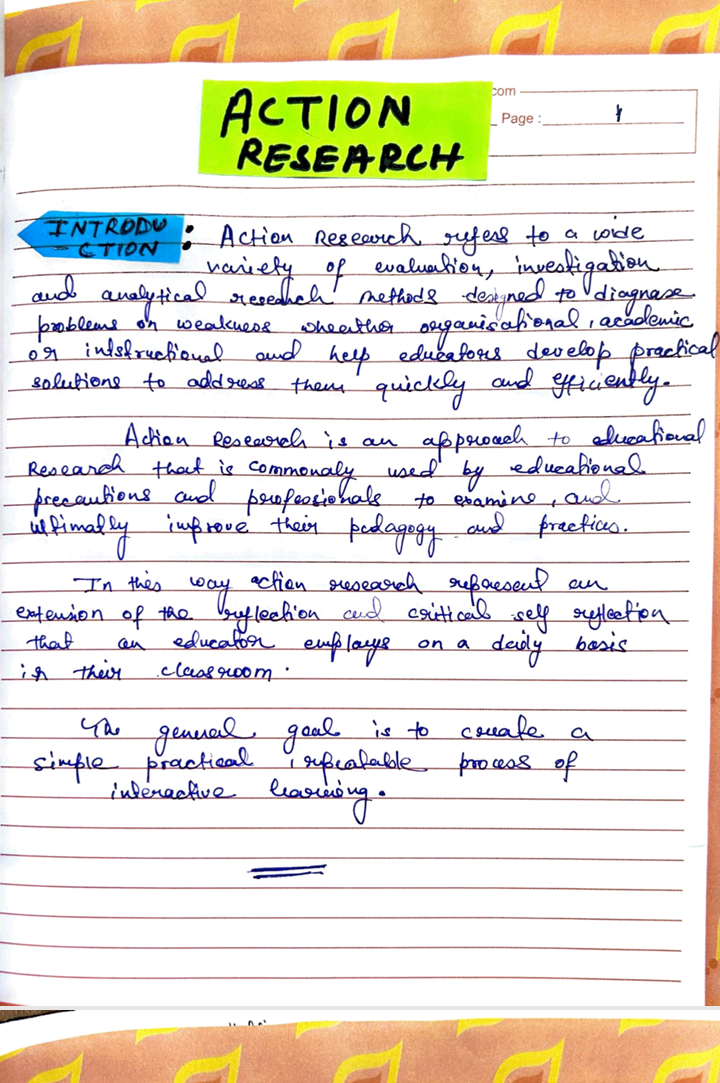 ACTION
RESEARCH
com
Page : 1
INTRODU
-CTION :
Action Research refers to a wide
variety of evaluation, investigation
and analytical research methods designed to diagnase
problems or weakness wheather organisational, academic
or intstructional and help educators develop practical
solutions to address them quickly and efficiently.
Action Research is an approach to educational
Research that is commonaly used by educational
precautions and professionals to examine, and
ultimatly improve their pedagogy and practices.
In this way action research represent an
extension of the reflection and critical self reflection
that an educator employs on a daily basis
in their classroom.
The general goal is to create a
simple practical, repeatable process of
interactive learning.